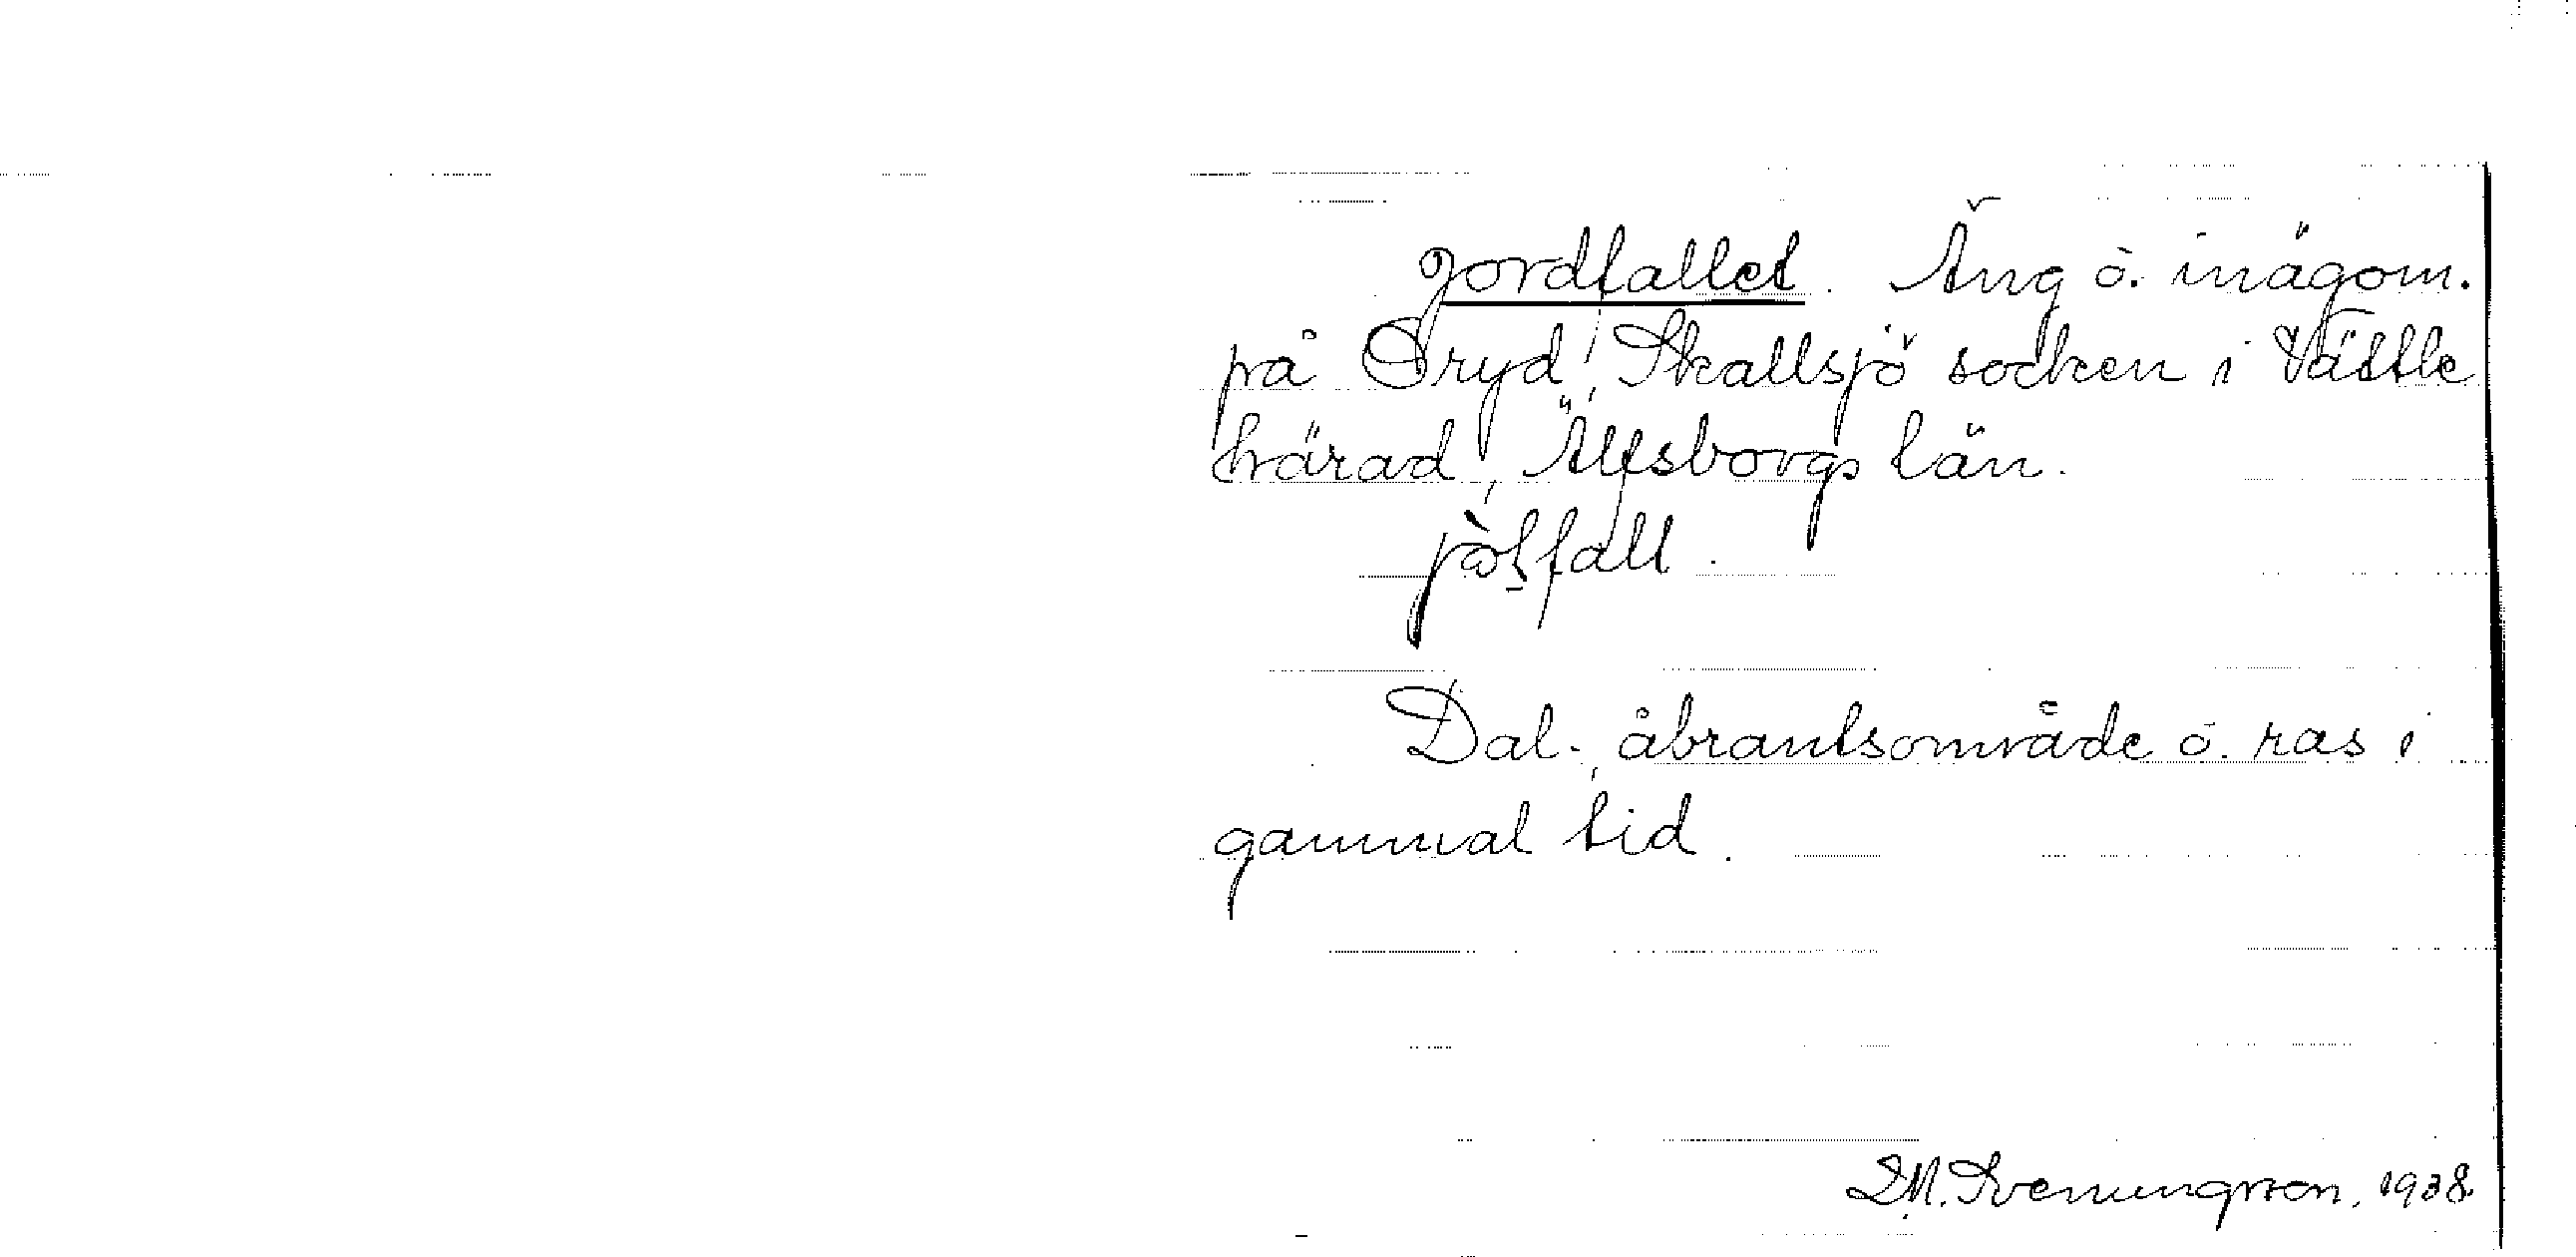 Jordfallet. Äng o. inägom.
på Öryd, Skallsjö socken i Vättle
härad, Älfsborgs län.
Dal-, åbrantsområde o. ras i
gammal tid.
D.M. Sveningsson, 1938